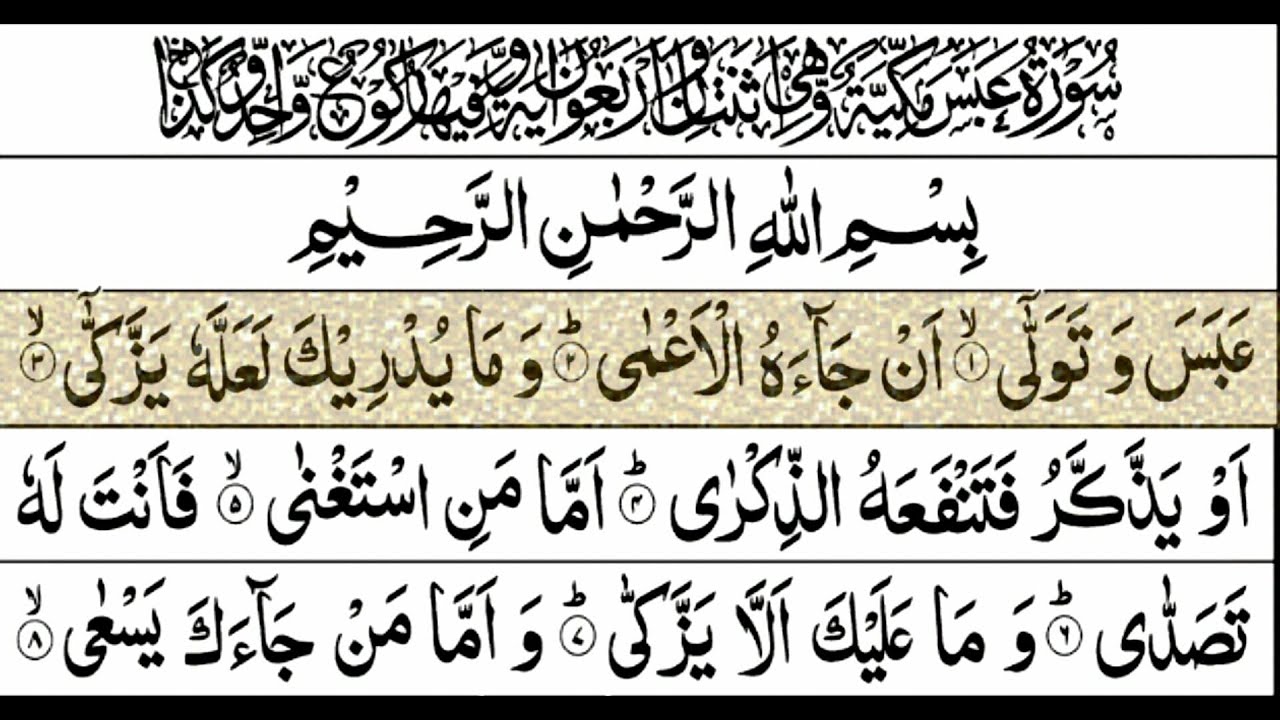 سُوْرَةُ عَبَسَ مَكِّيَّةٌ وَّهِيَ اثْنَتَانِ وَاَرْبَعُوْنَ اٰيَةً وَّفِيْهَا رُكُوْعٌ وَّاحِدٌ
بِسْمِ اللّٰهِ الرَّحْمٰنِ الرَّحِيْمِ
عَبَسَ وَ تَوَلّٰۤى ۙ﴿۱﴾ اَنْ جَآءَهُ الْاَعْمٰى ؕ﴿۲﴾ وَ مَا يُدْرِيْكَ لَعَلَّهٗ يَزَّكّٰۤى ۙ﴿۳﴾
اَوْ يَذَّكَّرُ فَتَنْفَعَهُ الذِّكْرٰى ؕ﴿۴﴾ اَمَّا مَنِ اسْتَغْنٰى ۙ﴿۵﴾ فَاَنْتَ لَهٗ
تَصَدّٰى ؕ﴿۶﴾ وَ مَا عَلَيْكَ اَلَّا يَزَّكّٰى ؕ﴿۷﴾ وَ اَمَّا مَنْ جَآءَكَ يَسْعٰى ۙ﴿۸﴾